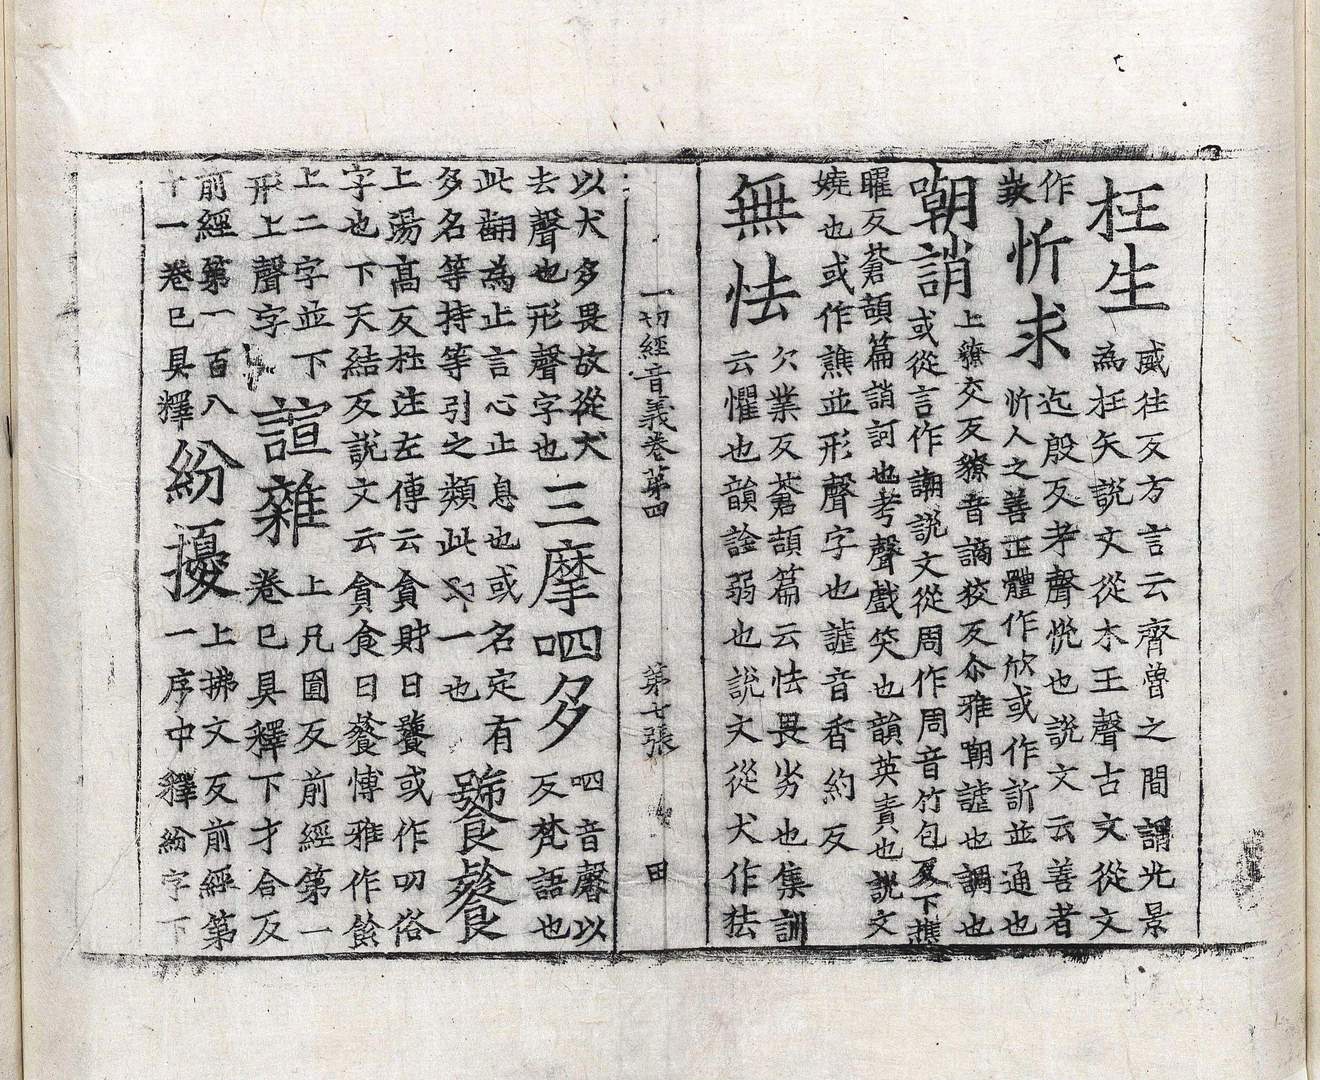 枉生 威往反方言云齊曾之間謂光景
為枉矢說文從木王聲古文從文
作 迄殷反考聲悅也說文云善者
忻求 忻人之善正體作欣或作訢並通也
嘲誚 上嘹交反嘹音謫狡反尒雅嘲謔也調也
或從言作謿說文從周作啁音竹包反下樵
曜反蒼頡篇誚訶也考聲戲笑也韻英責也說文
嬈也或作譙並形聲字也謔音香約反
無怯 欠業反蒼頡篇云怯畏劣也集訓
云懼也韻詮弱也說文從犬作㹤
一切經音義卷第四 第七張 田
以犬多畏故從犬
去聲也形聲字也
三摩呬多 呬音馨以
反梵語也
此翻為止言心止息也或名定有
多名等持等引之類此乃一也
饕餮
上湯高反杜注左傳云貪財曰饕或作叨俗
字也下天結反說文云貪食曰餮愽雅作飻
上二字並下
形上聲字
諠雜 上凡圎反前經第一
卷已具釋下才合反
前經第一百八
十一卷已具釋
紛擾 上拂文反前經第
一序中釋紛字下